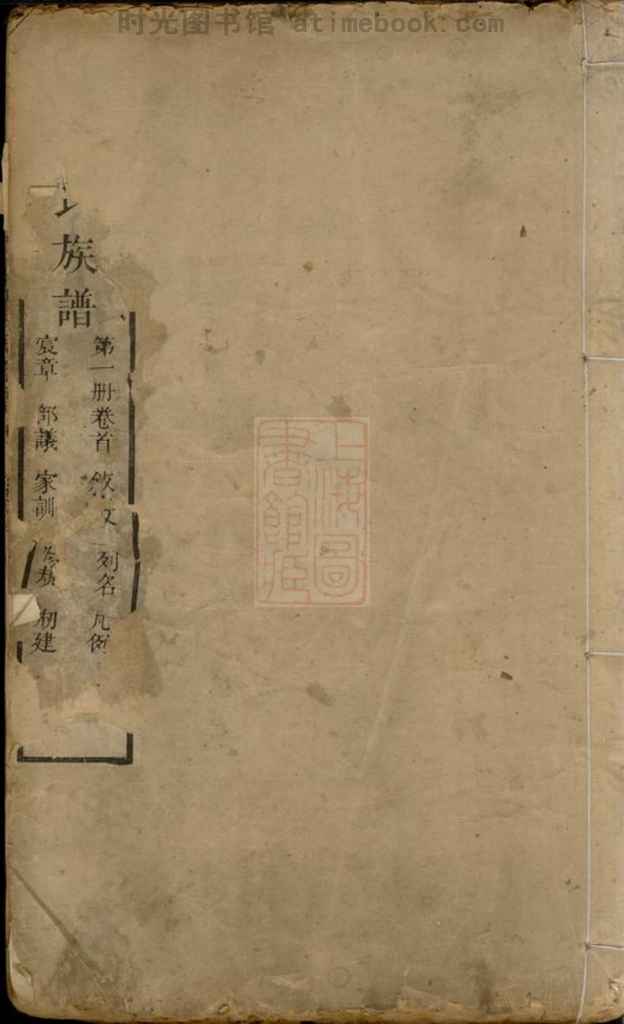 时光图书馆 atimebook.com
族譜
第一册卷首 敘文 列名 凡例
宸章 部議 家訓 叅核 朷建
上海圖書館藏